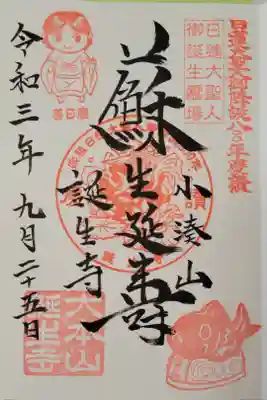 日蓮大聖人御降誕八百年慶讃
日蓮大聖人
御誕生霊場
小湊山
蘇生延寿
誕生寺
令和三年九月二十五日
善日麿
大本山
誕生寺